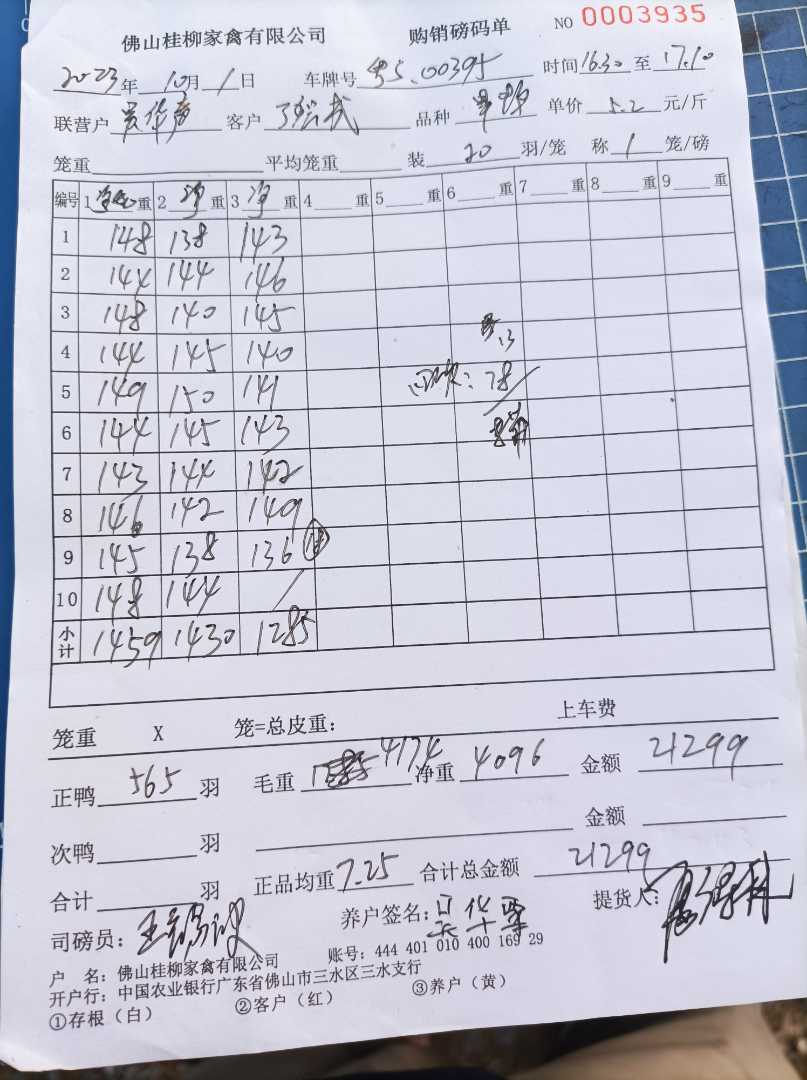 佛山桂柳家禽有限公司 购销磅码单 NO 0003935
2023年10月1日 车牌号 粤S.00395 时间16.30至17.10
联营户 客户 品种 单价 5.2 元/斤
笼重 平均笼重 装 20 羽/笼 称 1 笼/磅
编号 1 重 2 净 重 3 净 重 4 重 5 重 6 重 7 重 8 重 9 重
1 148 138 143
2 144 144 146
3 148 140 145
4 144 145 140 13
5 149 150 141 78
6 144 145 143
7 143 144 142
8 146 142 149
9 145 138 136
10 148 144 /
小计 1459 1430 1285
笼重 X 笼=总皮重: 上车费
正鸭 565 羽 毛重 4174 净重 4096 金额 21299
次鸭 羽 金额
合计 羽 正品均重 7.25 合计总金额 21299
司磅员: 养户签名: 提货人:
户 名: 佛山桂柳家禽有限公司 账号: 444 401 010 400 169 29
开户行: 中国农业银行广东省佛山市三水区三水支行
①存根(白) ②客户(红) ③养户(黄)